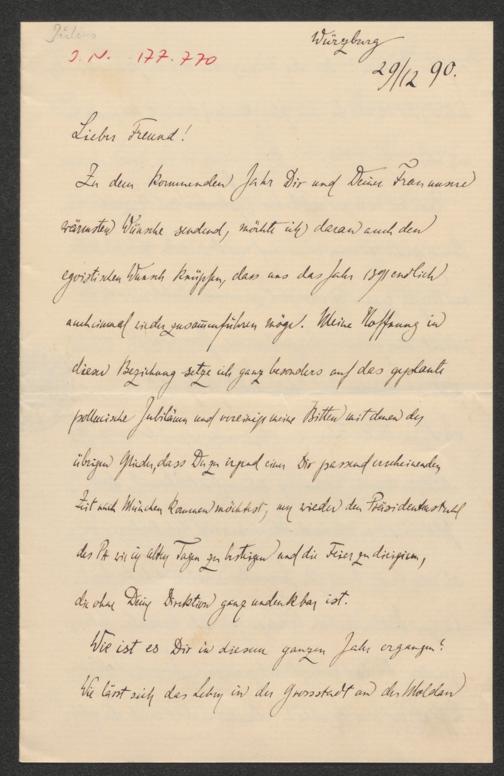 Würzburg
J. N. 177.770
29/12 90.
Lieber Freund!
Zu dem kommenden Jahr Dir und Deiner Frau unsere
wärmsten Wünsche sendend, möchte ich daran auch den
egoistischen Wunsch knüpfen, dass uns das Jahr 1891 endlich
auch einmal wieder zusammenführen möge. Meine Hoffnung in
dieser Beziehung setze ich ganz besonders auf das geplante
jubiläum und vereinige meine Bitten mit denen der
übrigen Glieder, dass Du zu irgend einer Dir passend erscheinenden
Zeit nach München kommen möchtest, um wieder den Präsidentenstuhl
des wie in alten Tagen zu besteigen und die Feier zu dirigiren,
die ohne Deine Direktion ganz undenkbar ist.
Wie ist es Dir in diesem ganzen Jahr ergangen?
Wie lässt sich das Leben in der Grossstadt an der Moldau